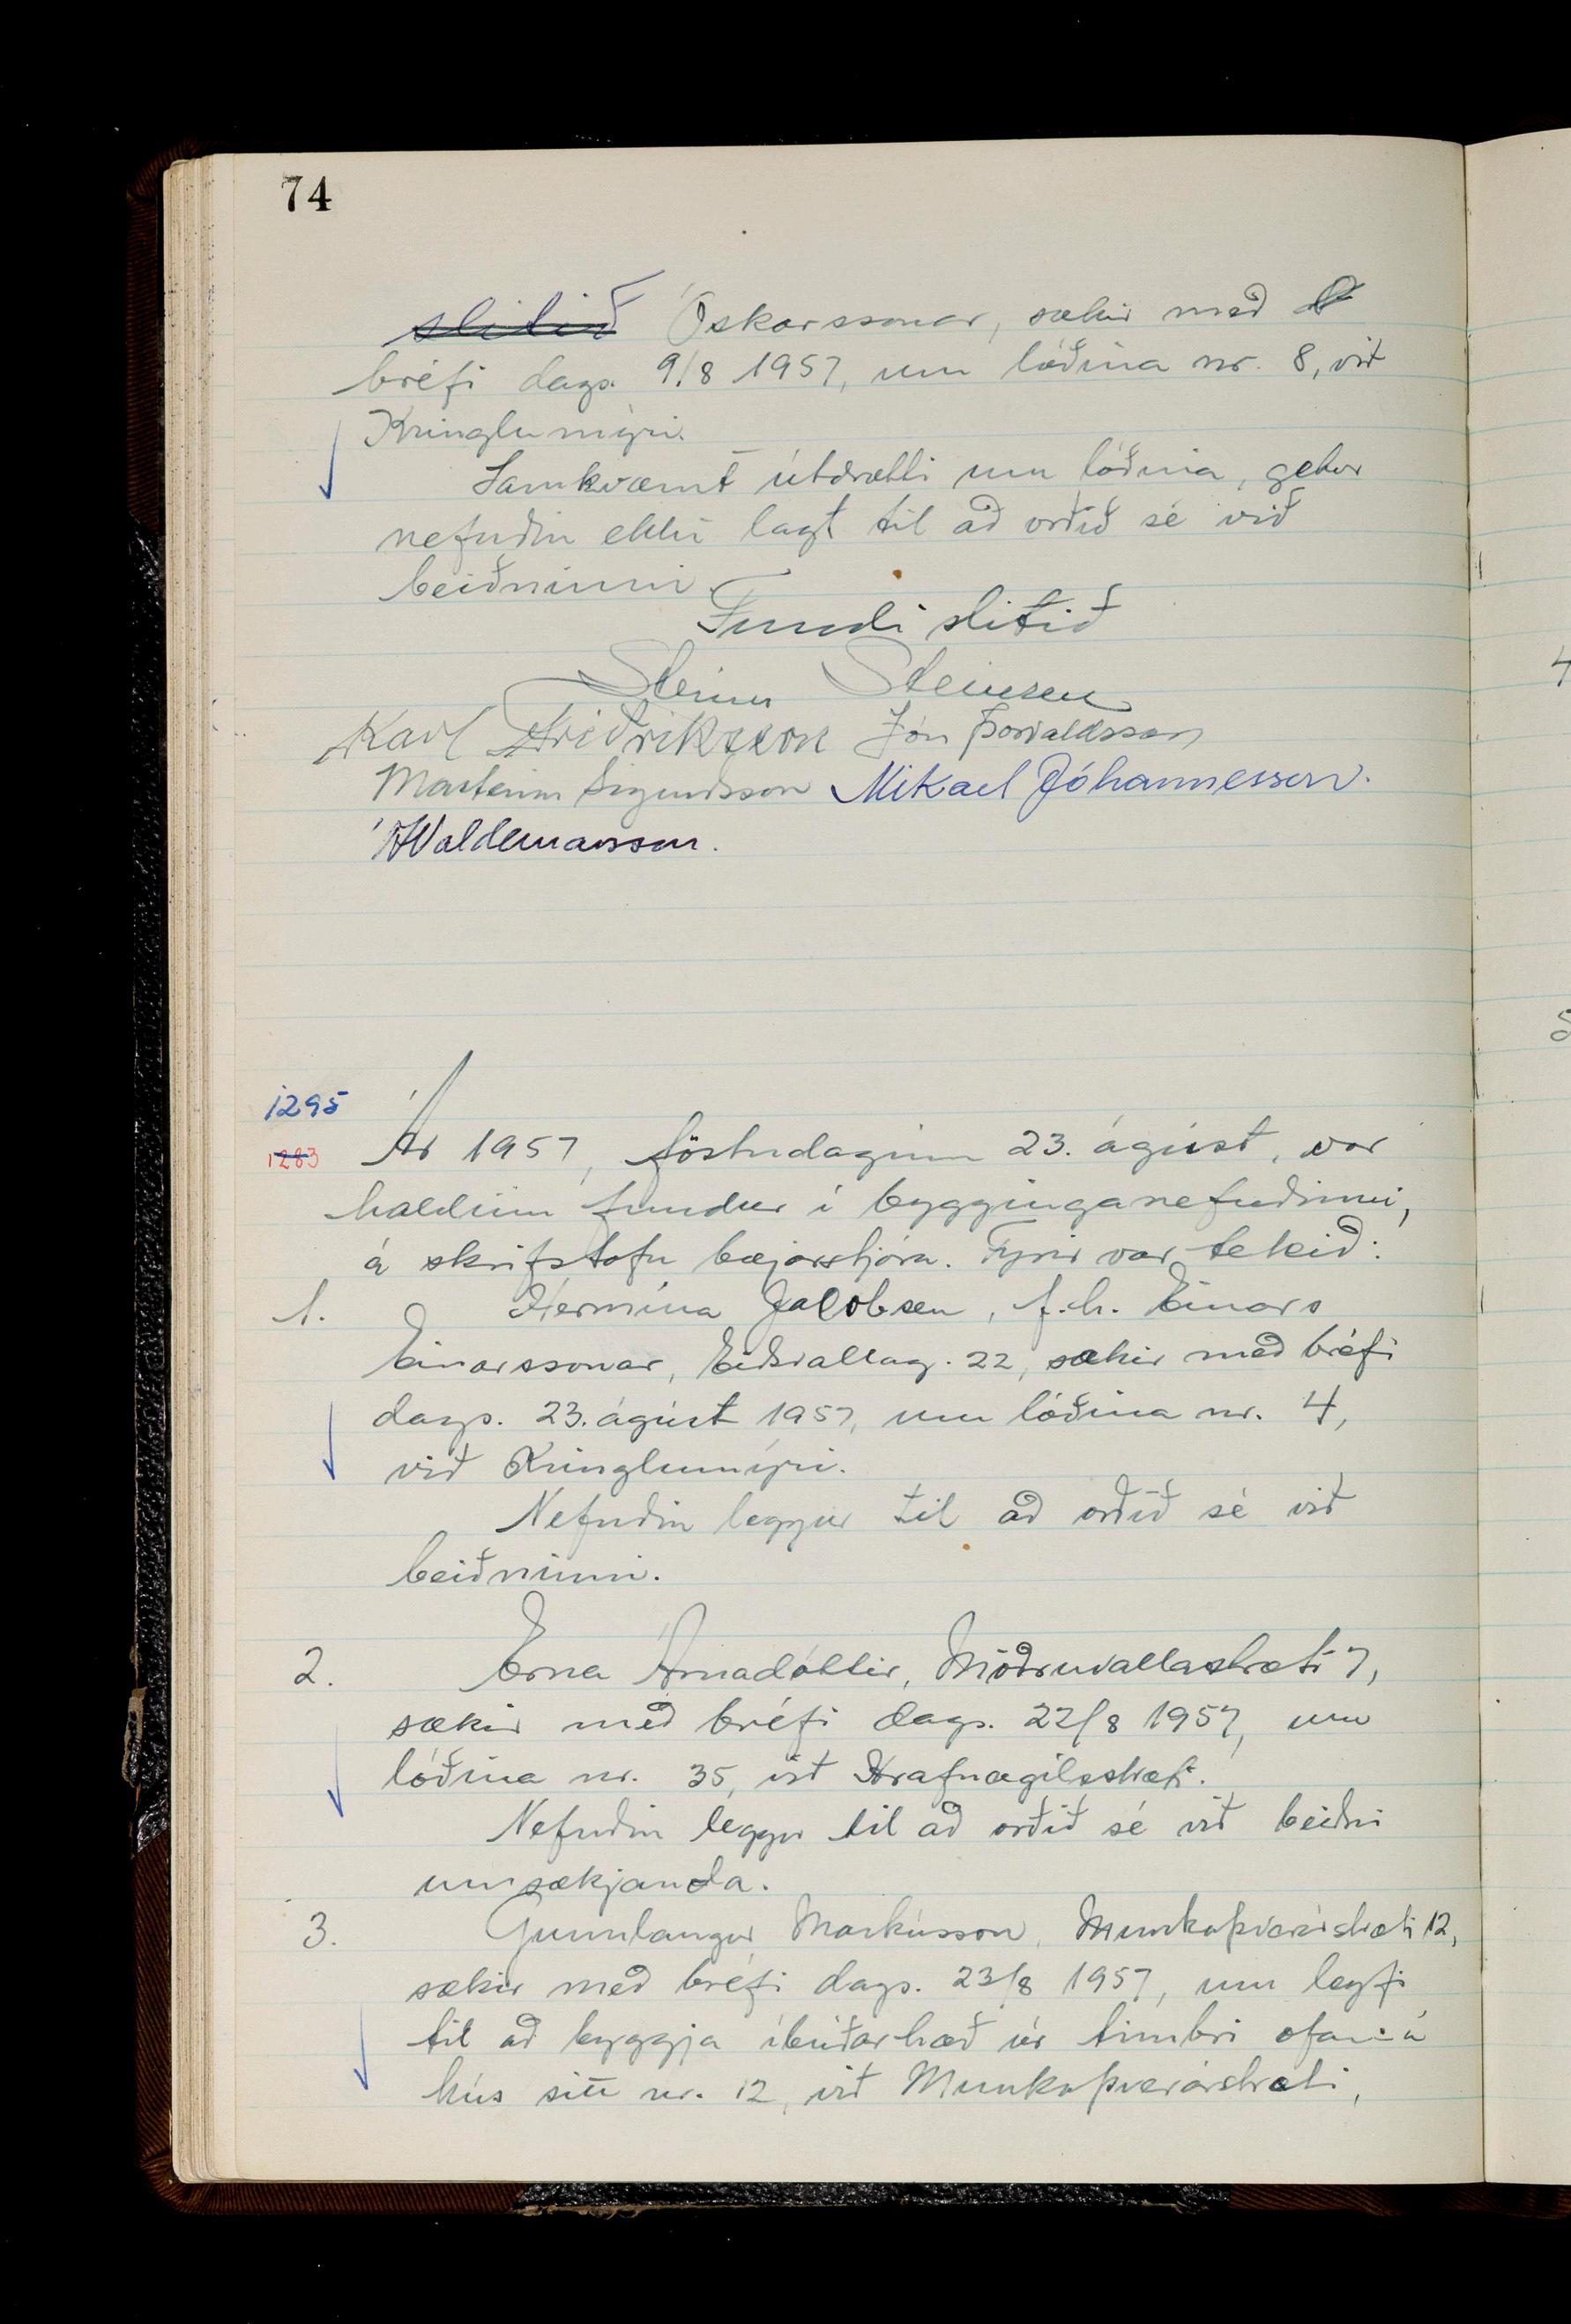 74
slitið Óskarssonar, sækir með
bréfi dags. 9/8 1957, um lóðina nr. 8, við
Kringlumýri.
Samkvæmt útdrætti um lóðina, getur
nefndin ekki lagt til að orðið sé við
beiðninni.
Fundi slitið
Steinn Steinsen
Karl Friðriksson Jón Þorvaldsson
Marteinn Sigurðsson Mikael Jóhannesson.
Waldemarsson.
1295
1283 Ár 1957, föstudaginn 23. ágúst, var
haldinn fundur í bygginganefndinni,
á skrifstofu bæjarstjóra. Fyrir var tekið:
1. Hermína Jakobsen, f.h. Einars
Einarssonar, Eiðsvallag. 22, sækir með bréfi
dags. 23. ágúst 1957, um lóðina nr. 4,
við Kringlumýri.
Nefndin leggur til að orðið sé við
beiðninni.
2. Erna Árnadóttir, Möðruvallastræti 7,
sækir með bréfi dags. 22/8 1957, um
lóðina nr. 35, við Hrafnagilsstræti.
Nefndin leggur til að orðið sé við beiðni
umsækjanda.
3. Gunnlaugur Markússon, Munkaþverárstræti 12,
sækir með bréfi dags. 23/8 1957, um leyfi
til að byggja íbúðarhæð úr timbri ofan á
hús sitt nr. 12, við Munkaþverárstræti,